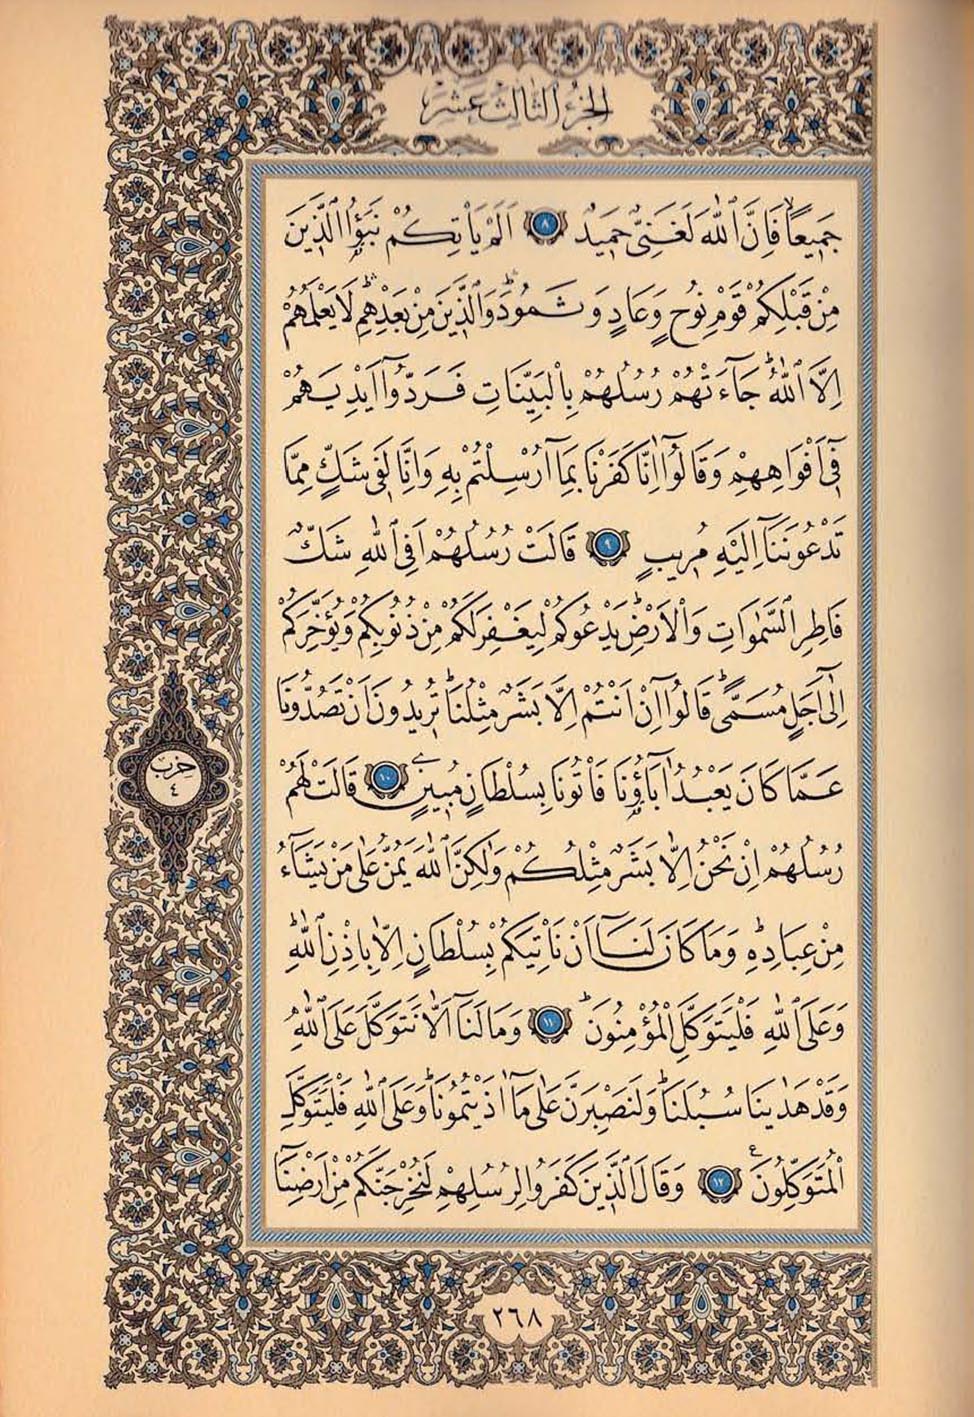 الجزء الثالث عشر
جَمِيعًاۙ فَاِنَّ اللّٰهَ لَغَنِيٌّ حَمِيدٌ ﴿٨﴾ اَلَمْ يَأْتِكُمْ نَبَؤُا الَّذِينَ
مِنْ قَبْلِكُمْ قَوْمِ نُوحٍ وَعَادٍ وَثَمُودَۜ وَالَّذِينَ مِنْ بَعْدِهِمْۜ لَا يَعْلَمُهُمْ
اِلَّا اللّٰهُۜ جَٓاءَتْهُمْ رُسُلُهُمْ بِالْبَيِّنَاتِ فَرَدُّٓوا اَيْدِيَهُمْ
فِٓي اَفْوَاهِهِمْ وَقَالُٓوا اِنَّا كَفَرْنَا بِمَٓا اُرْسِلْتُمْ بِهِ وَاِنَّا لَفِي شَكٍّ مِمَّا
تَدْعُونَنَٓا اِلَيْهِ مُرِيبٍ ﴿٩﴾ قَالَتْ رُسُلُهُمْ اَفِي اللّٰهِ شَكٌّ
فَاطِرِ السَّمٰوَاتِ وَالْاَرْضِۜ يَدْعُوكُمْ لِيَغْفِرَ لَكُمْ مِنْ ذُنُوبِكُمْ وَيُؤَخِّرَكُمْ
اِلٰٓى اَجَلٍ مُسَمًّىۜ قَالُٓوا اِنْ اَنْتُمْ اِلَّا بَشَرٌ مِثْلُنَاۜ تُرِيدُونَ اَنْ تَصُدُّونَا
عَمَّا كَانَ يَعْبُدُ اٰبَٓاؤُنَا فَأْتُونَا بِسُلْطَانٍ مُبِينٍ ﴿١٠﴾ قَالَتْ لَهُمْ
حزب
٤
رُسُلُهُمْ اِنْ نَحْنُ اِلَّا بَشَرٌ مِثْلُكُمْ وَلٰكِنَّ اللّٰهَ يَمُنُّ عَلٰى مَنْ يَشَٓاءُ
مِنْ عِبَادِهِۜ وَمَا كَانَ لَنَٓا اَنْ نَأْتِيَكُمْ بِسُلْطَانٍ اِلَّا بِاِذْنِ اللّٰهِۜ
وَعَلَى اللّٰهِ فَلْيَتَوَكَّلِ الْمُؤْمِنُونَ ﴿١١﴾ وَمَا لَنَٓا اَلَّا نَتَوَكَّلَ عَلَى اللّٰهِ
وَقَدْ هَدٰينَا سُبُلَنَاۜ وَلَنَصْبِرَنَّ عَلٰى مَٓا اٰذَيْتُمُونَاۜ وَعَلَى اللّٰهِ فَلْيَتَوَكَّلِ
الْمُتَوَكِّلُونَ ﴿١٢﴾ وَقَالَ الَّذِينَ كَفَرُوا لِرُسُلِهِمْ لَنُخْرِجَنَّكُمْ مِنْ اَرْضِنَٓا
٢٦٨